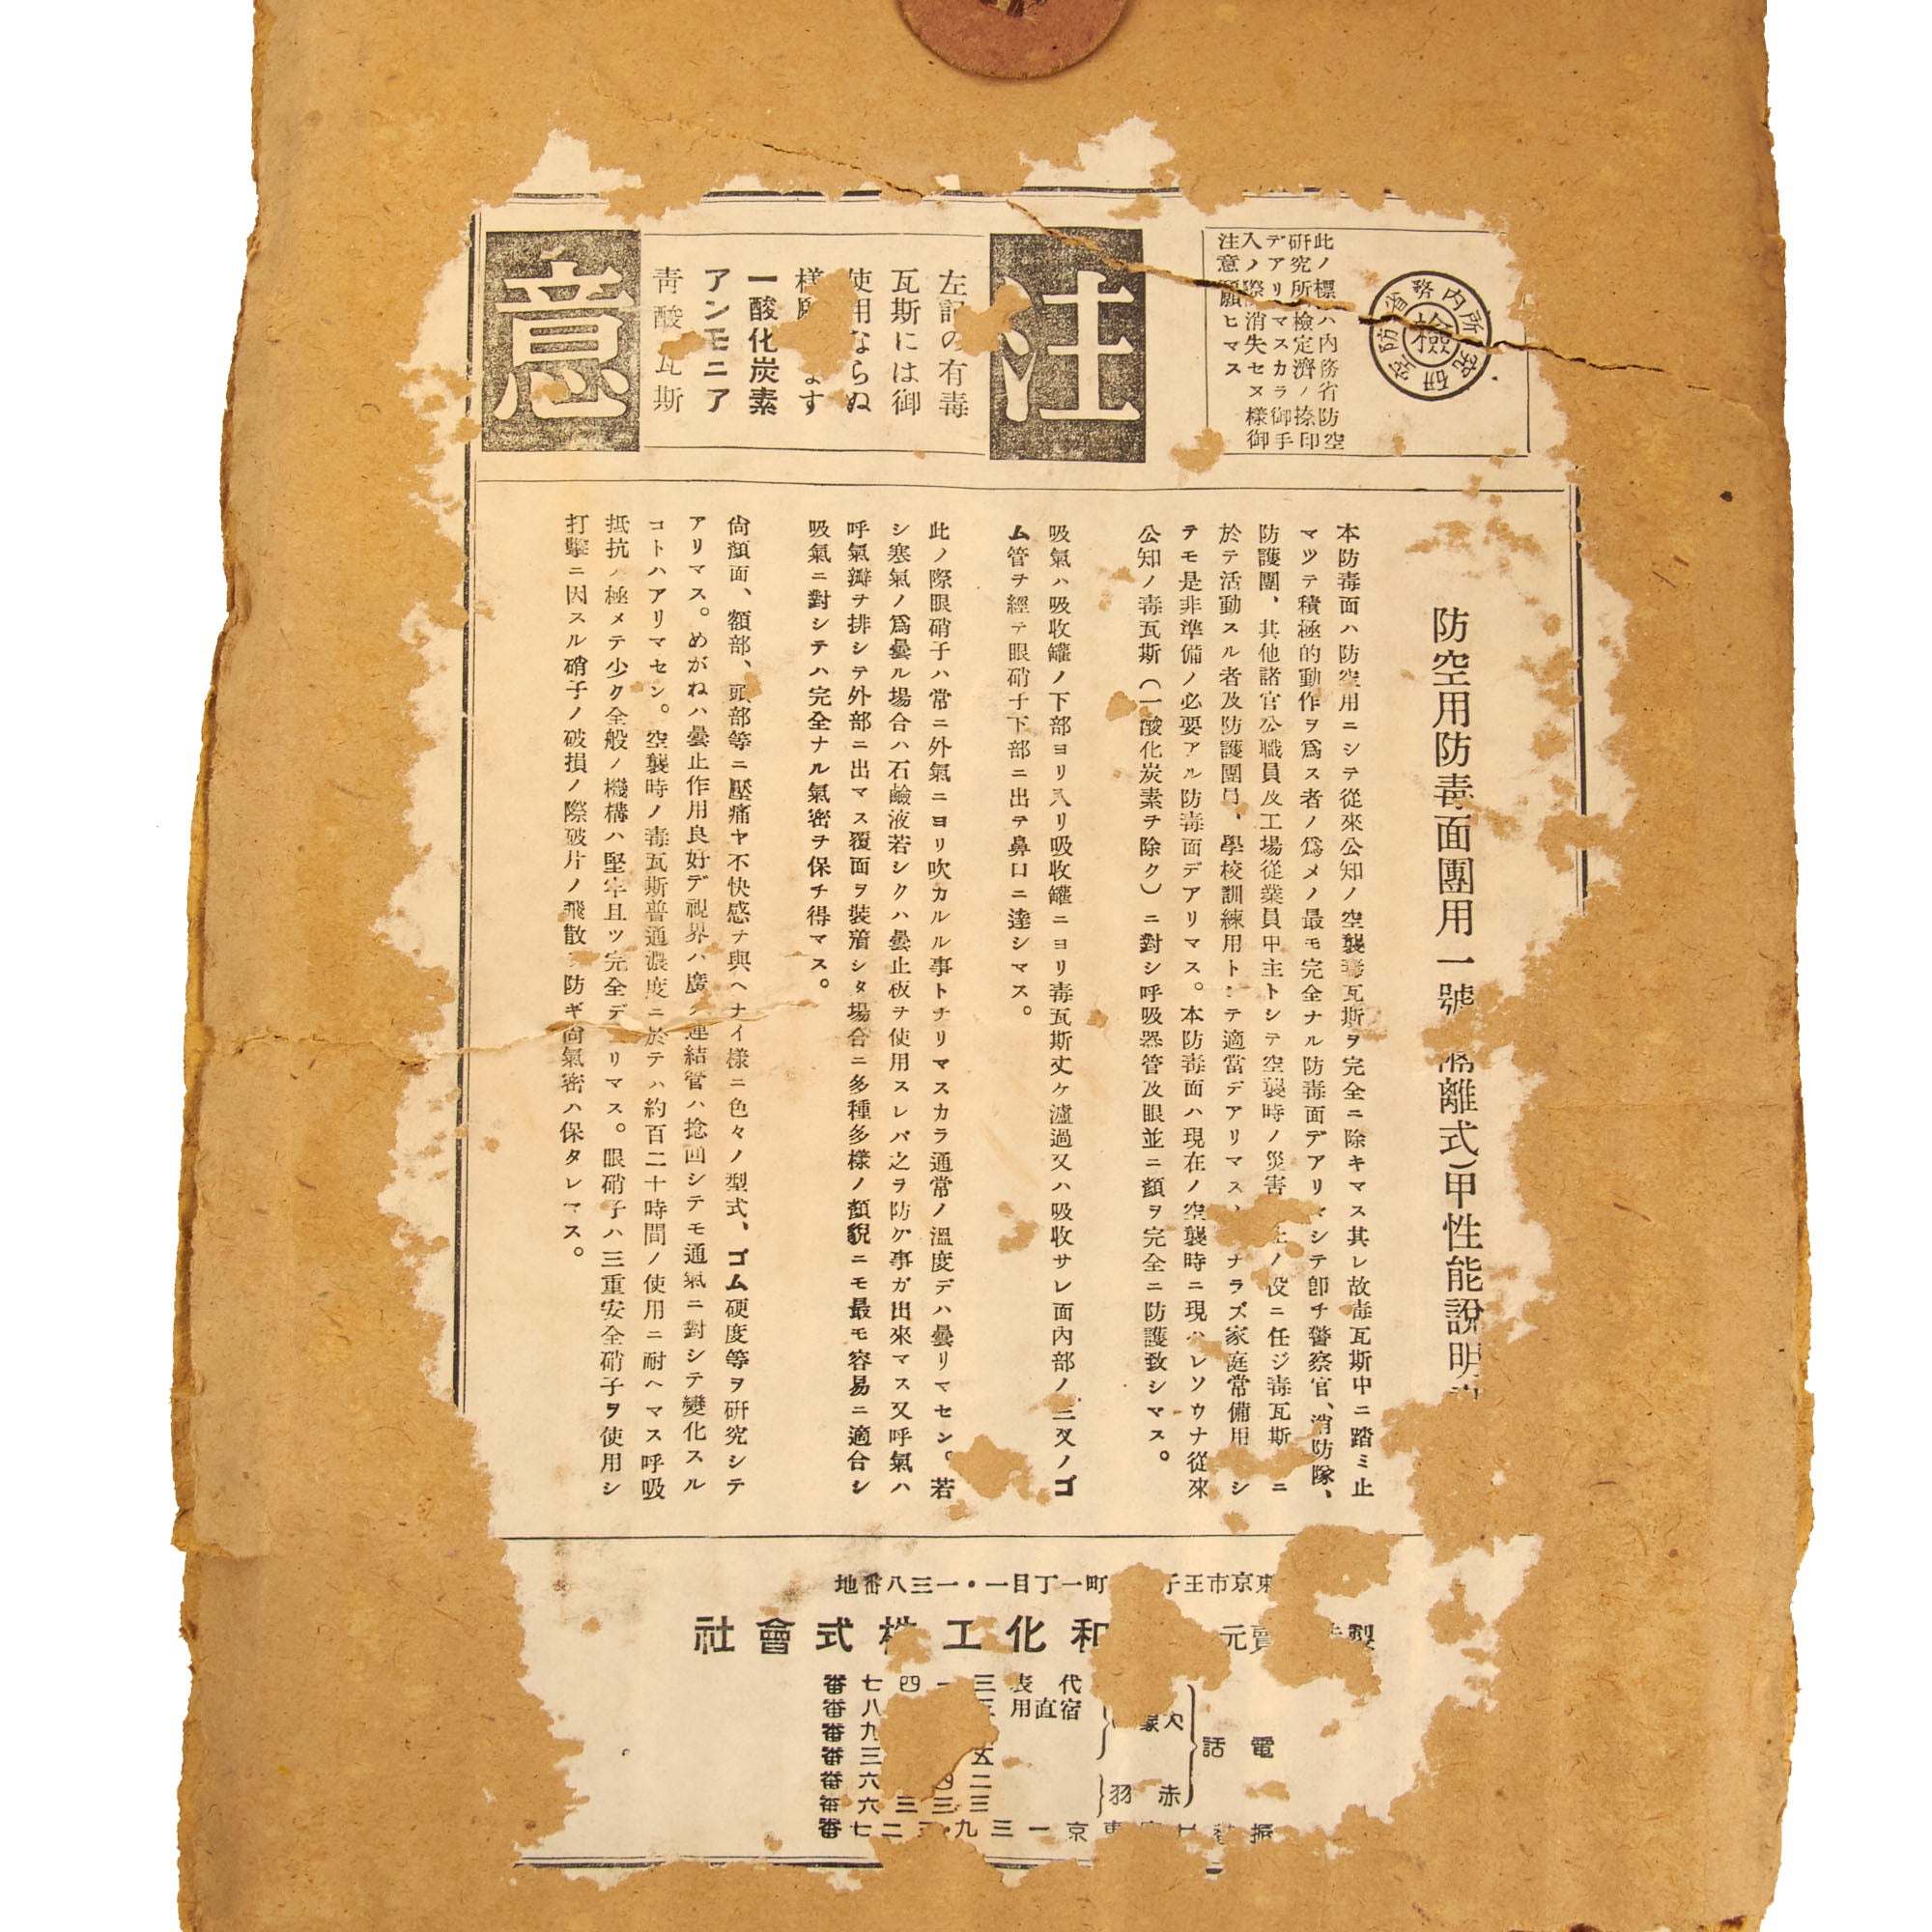 內務省防空研究所
檢
此ノ標ハ內務省防空
研究所檢定濟ノ捺印
デアリマスカラ御手
入ノ際消失セヌ樣御
注意願ヒマス
注
左記の有毒
瓦斯には御
使用ならぬ
樣す
一酸化炭素
アンモニア
靑酸瓦斯
意
防空用防毒面團用一號離式)甲性能說明
本防毒面ハ防空用ニシテ從來公知ノ空襲毒瓦斯ヲ完全ニ除キマス其レ故毒瓦斯中ニ踏ミ止
マツテ積極的動作ヲ爲ス者ノ爲メノ最モ完全ナル防毒面デアリマシテ卽チ警察官、消防隊、
防護團、其他諸官公職員及工場從業員中主トシテ空襲時ノ災害止ノ役ニ任ジ毒瓦斯ニ
於テ活動スル者及防護團員、學校訓練用トシテ適當デアリマスナラズ家庭常備用シ
テモ是非準備ノ必要アル防毒面デアリマス。本防毒面ハ現在ノ空襲時ニ現ハレソウナ從來
公知ノ毒瓦斯(一酸化炭素ヲ除ク)ニ對シ呼吸器管及眼並ニ顏ヲ完全ニ防護致シマス。
吸氣ハ吸收罐ノ下部ヨリ入リ吸收罐ニヨリ毒瓦斯丈ケ濾過又ハ吸收サレ面內部ノ三叉ノゴ
ム管ヲ經テ眼硝子下部ニ出テ鼻口ニ達シマス。
此ノ際眼硝子ハ常ニ外氣ニヨリ吹カルル事トナリマスカラ通常ノ溫度デハ曇リマセン。若
シ寒氣ノ爲曇ル場合ハ石鹼液若シクハ曇止板ヲ使用スレバ之ヲ防グ事ガ出來マス又呼氣ハ
呼氣瓣ヲ排シテ外部ニ出マス覆面ヲ裝着シタ場合ニ多種多樣ノ顏貌ニモ最モ容易ニ適合シ
吸氣ニ對シテハ完全ナル氣密ヲ保チ得マス。
尙顏面、額部、頭部等ニ壓痛ヤ不快感ヲ與ヘナイ樣ニ色々ノ型式、ゴム硬度等ヲ硏究シテ
アリマス。めがねハ曇止作用良好デ視界ハ廣ク連結管ハ捻回シテモ通氣ニ對シテ變化スル
コトハアリマセン。空襲時ノ毒瓦斯普通濃度ニ於テハ約百二十時間ノ使用ニ耐ヘマス呼吸
抵抗ノ極メテ少ク全般ノ機構ハ堅牢且ツ完全デリマス。眼硝子ハ三重安全硝子ヲ使用シ
打擊ニ因スル硝子ノ破損ノ際破片ノ飛散防ギ尙氣密ハ保タレマス。
地番八三一・一目丁一町子王市京東
社會式株工化和元賣製
話電
羽赤
表代
用直宿
番七四一三
番八三
番九
番三五
番六二
番六三三三
番七二九三一京東替振